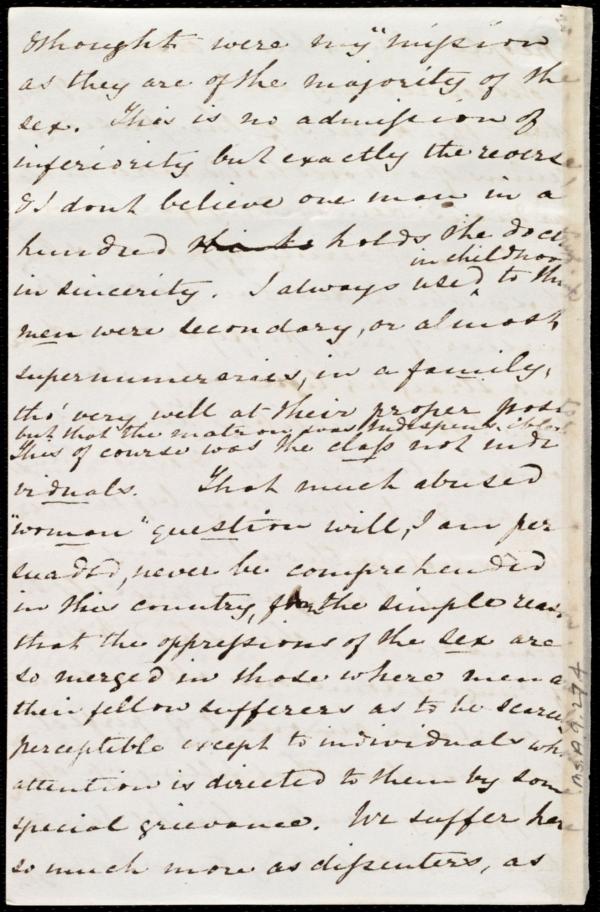 thought were my "mission
as they are of the majority of the
sex. This is no admission of
inferiority but exactly the reverse,
& I dont believe one man in a
hundred holds the doct
in childhood
in sincerity. I always used to think
men were secondary, or almost
supernumeraries, in a family,
tho' very well at their proper posts
but that the matron was indispensable
This of course was the class not indi
viduals. That much abused
"woman" question will, I am per
suaded, never be comprehended
in this country, from the simple reason
that the oppressions of the sex are
so merged in those where men a
their fellow sufferers as to be scarce
perceptible except to individuals wh
attention is directed to them by some
special grievance. We suffer here
so much more as dissenters, as
Ms.A.9.2 p.74